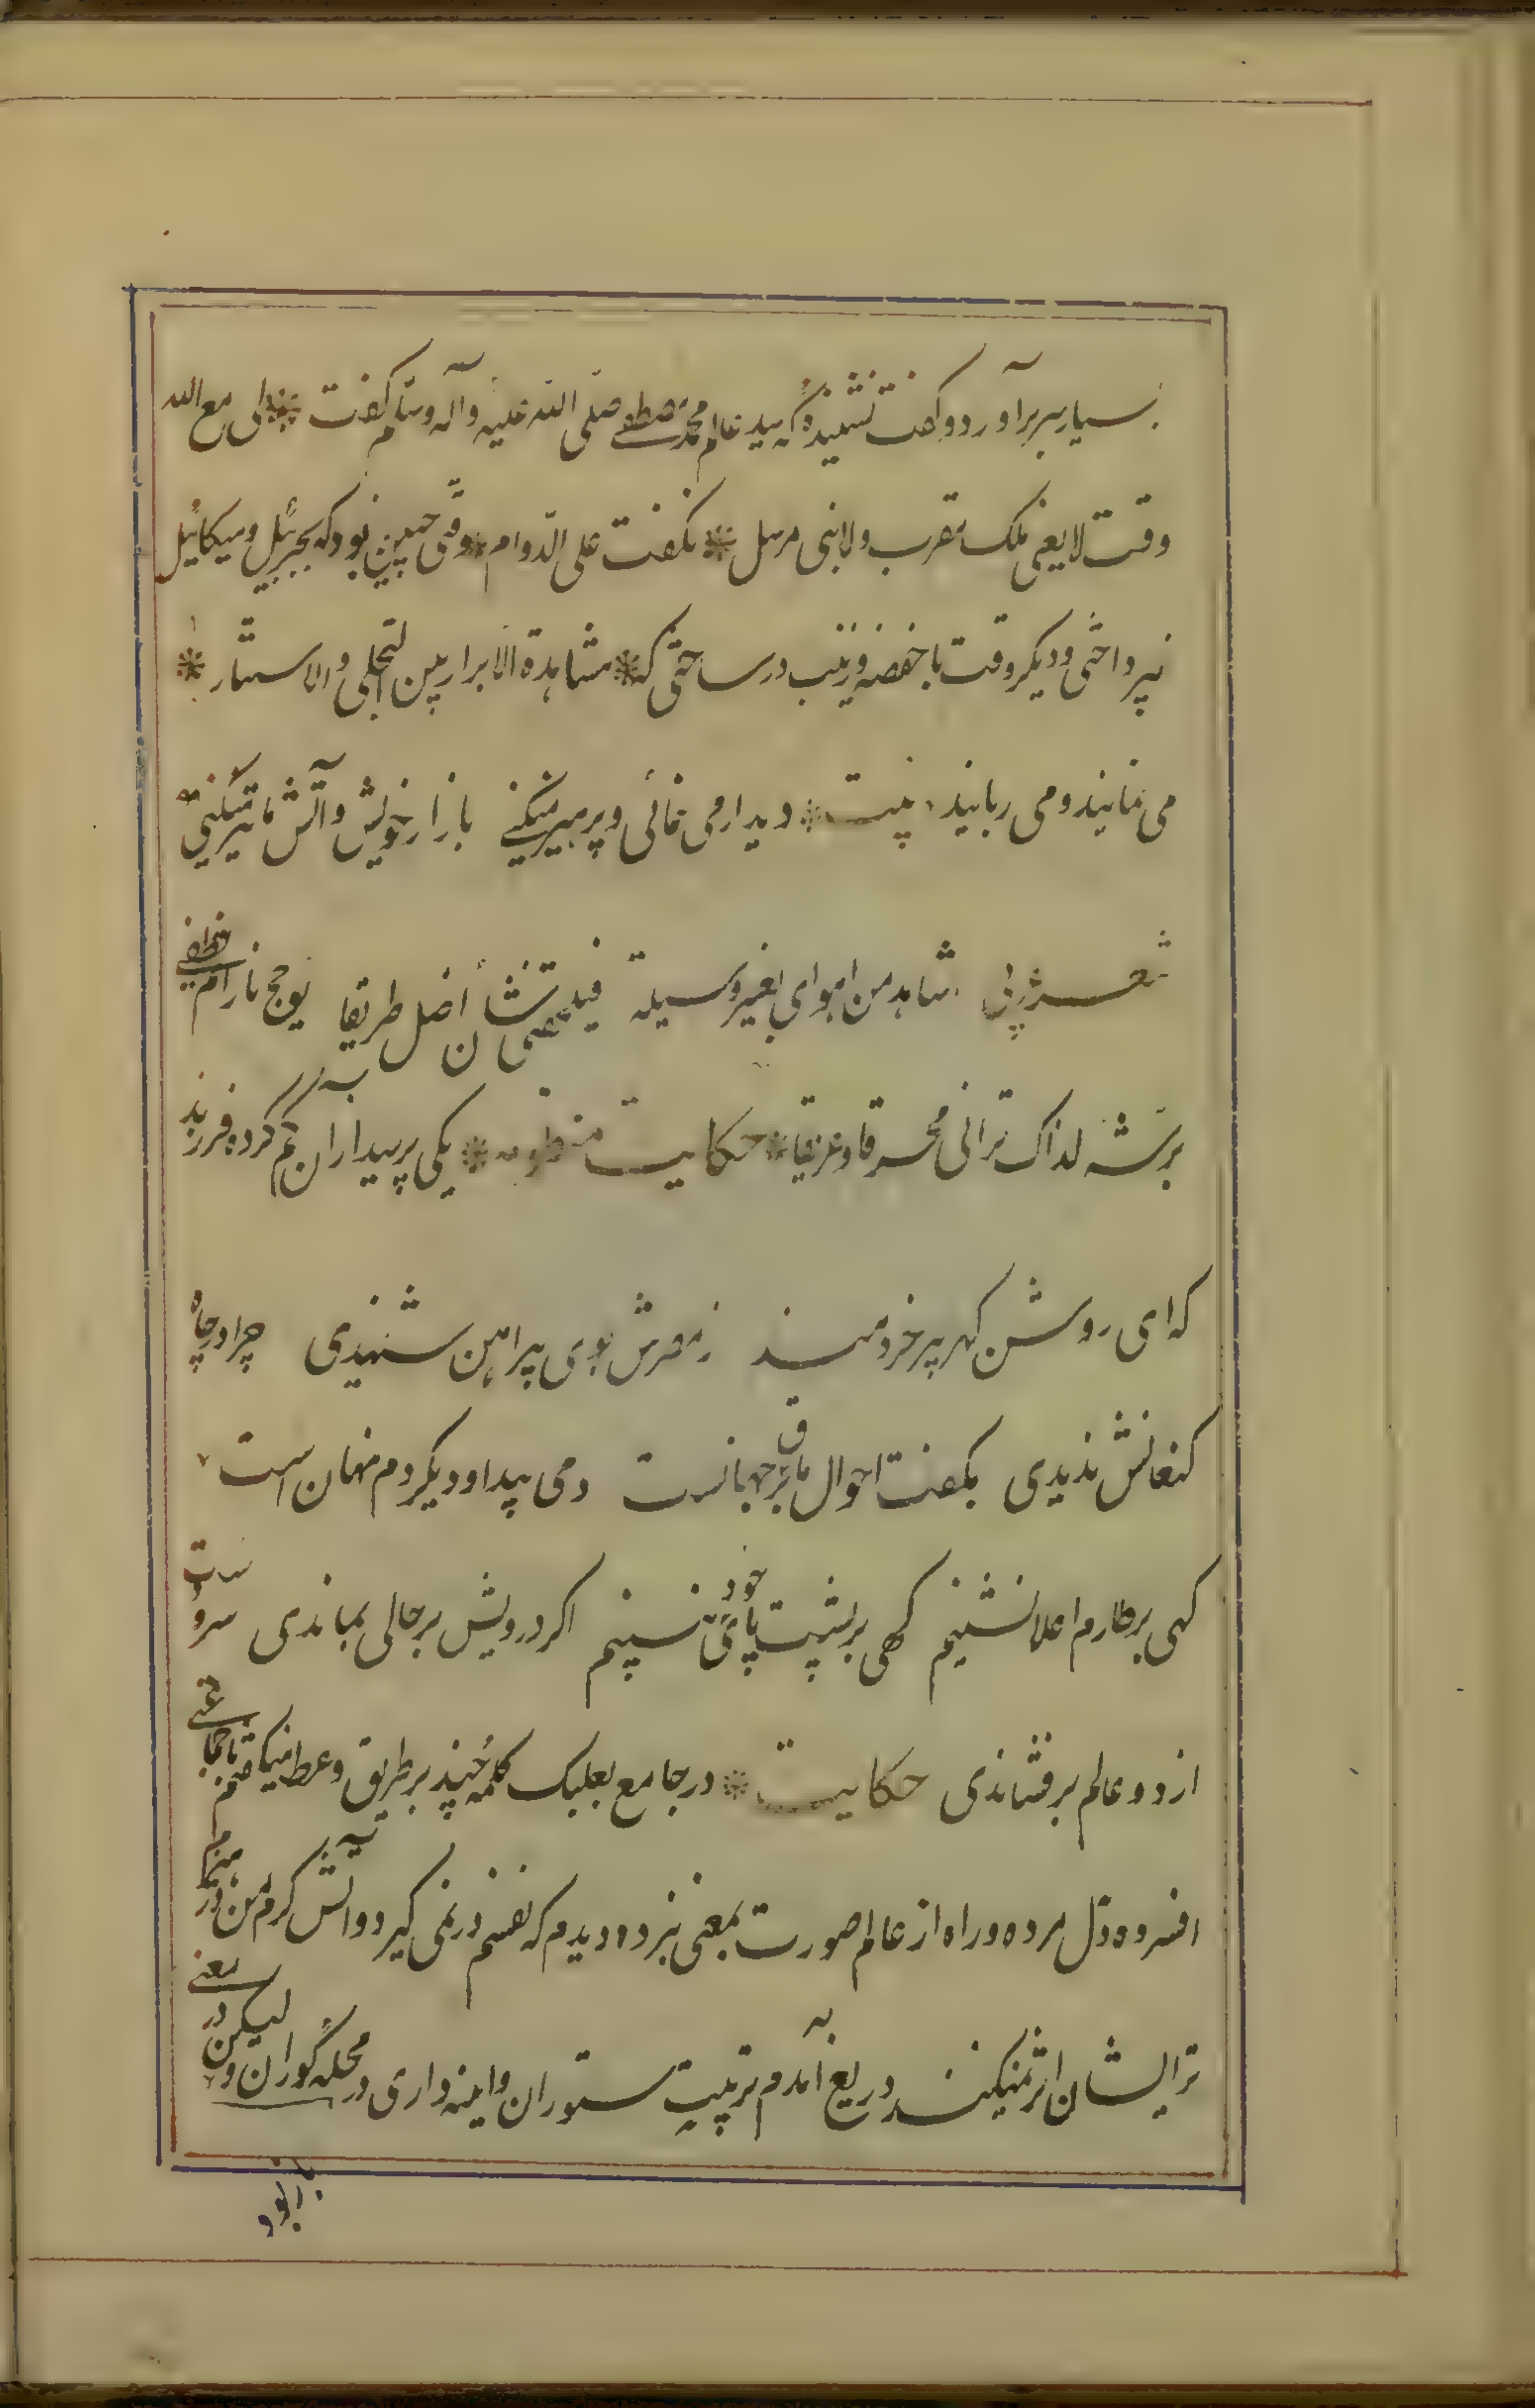 بسیار سر برآورد و گفت نشنیدهٔ که سید عالم محمد مصطفی صلی الله علیه وآله وسلم گفت لی مع الله
وقت لایعنی ملک مقرب ولا نبی مرسل * نگفت علی الدوام * وقتی چنین بودکه بجبرئیل ومیکائیل
نپرداختی ودیگر وقت با حفصه وزینب در ساختی که * مشاهدة الابرار بین التجلی والاستتار *
می نمایند و می ربایند بیت * دیدار می نمائی و پرهیز میکنی بازار خویش و آتش ما تیز میکنی
شعر عربی اشاهد من اهوای بغیر وسیلة فیلحقنی شأن اضل طریقا یؤجج نارا ثم یطفی
برشه لذاک ترانی محرقا وغریقا * حکایت منظومه * یکی پرسید ازان گم کرده فرزند
که ای روشن گهر پیر خردمند ز مصرش بوی پیراهن شنیدی چرا در چاه
کنعانش ندیدی بگفت احوال ما برق جهانست دمی پیدا و دیگر دم نهان است
گهی بر طارم اعلا نشینیم گهی بر پشت پای خود نبینیم اگر درویش بر حالی بماندی سر و دست
از دو عالم برفشاندی حکایت * در جامع بعلبک کلمهٔ چند بر طریق وعظ میگفتم با جماعتی
افسرده دل مرده و راه از عالم صورت بمعنی نبرده دیدم که نفسم در نمی گیرد و آتش گرم من در هیزم
تر ایشان اثر نمیکند دریغ آمدم تربیت ستوران و اینه داری در محلهٔ کوران ولیکن در معنی
باز بود